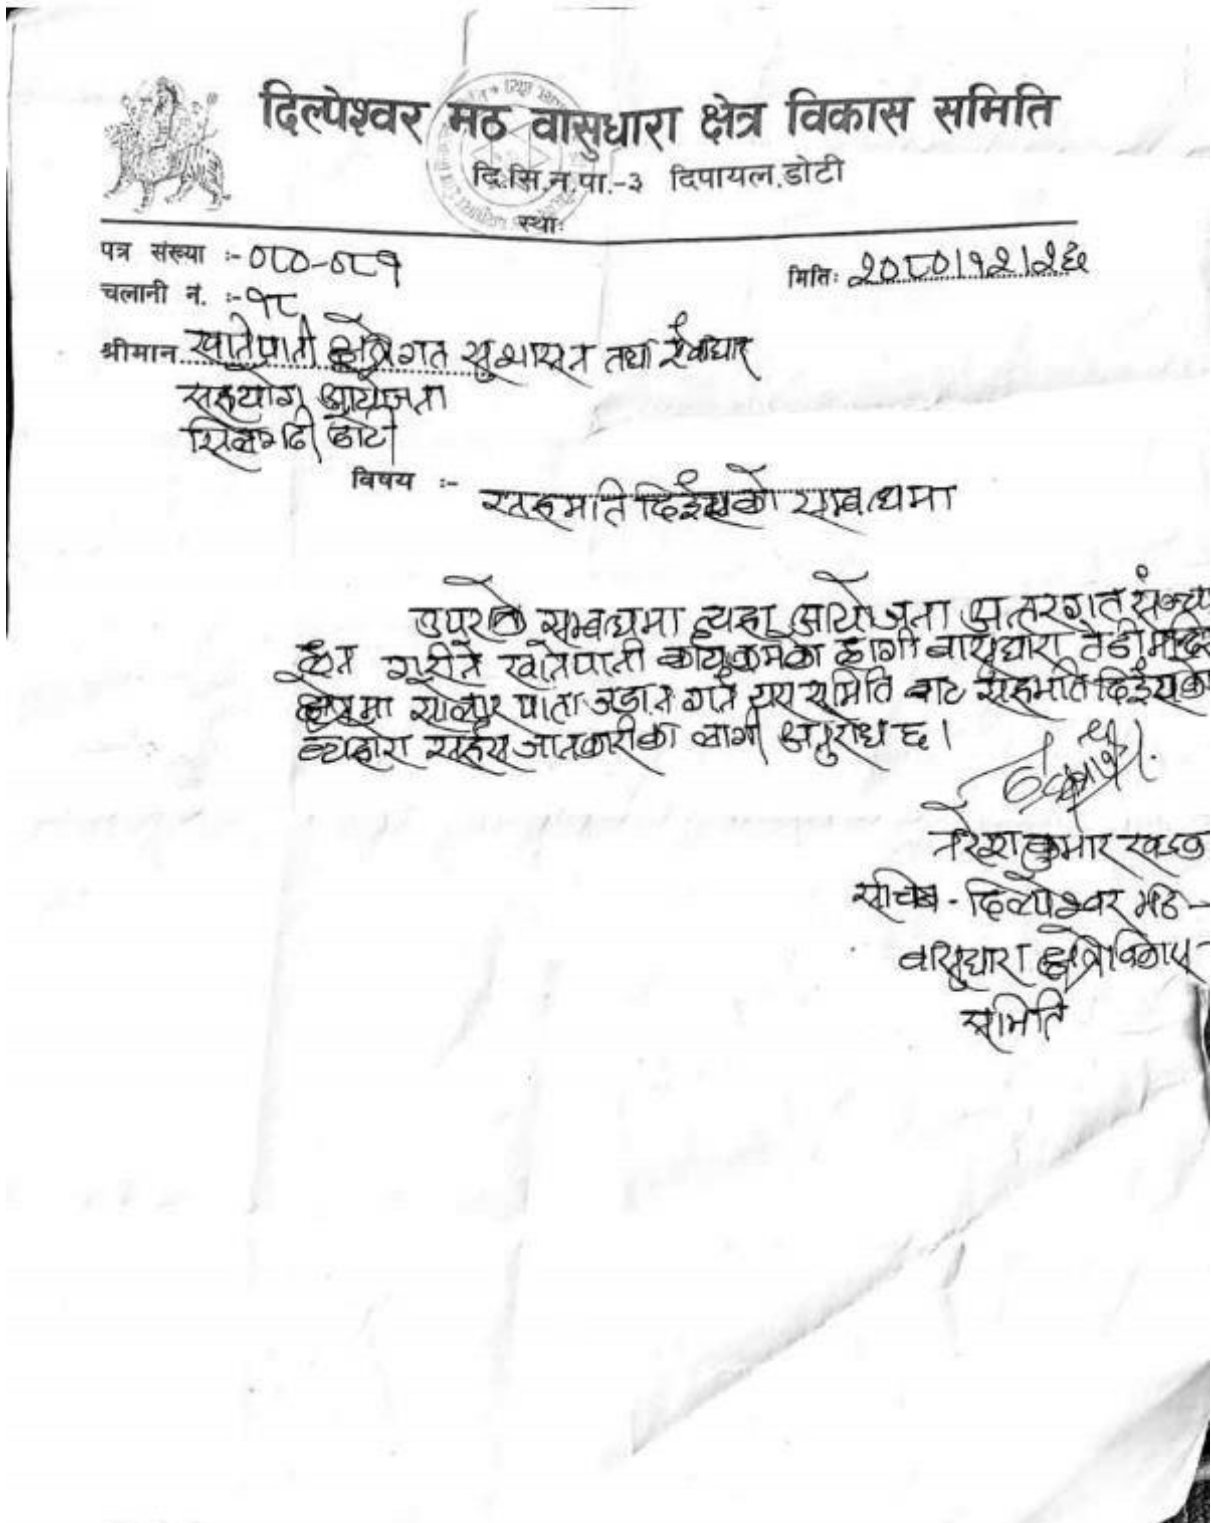 दिल्पेश्वर मठ वासुधारा क्षेत्र विकास समिति
दि.सि.न.पा.-३ दिपायल,डोटी
स्था:
पत्र संख्या :- ०८०-०८१
मितिः २०८०।१२।२६
चलानी नं. :- १८
श्रीमान खानेपानी क्षेत्रगत सुशासन तथा
सहयोग आयोजना
सिलगढी डोटी
विषय :- सहमति दिईएको सम्बन्धमा
उपरोक्त सम्बन्धमा त्यहा आयोजना अन्तरगत
गरीने खानेपानी कार्यक्रमका लागी वासुधारा
क्षेत्रमा सोलार पाता जडान गर्न यस समिति बाट सहमति दिईएको
व्यहोरा सहर्ष जानकारीका लागी अनुरोध छ।
नरेश कुमार खड्का
सचिब - दिल्पेश्वर मठ -
वासुधारा क्षेत्र विकास -
समिति